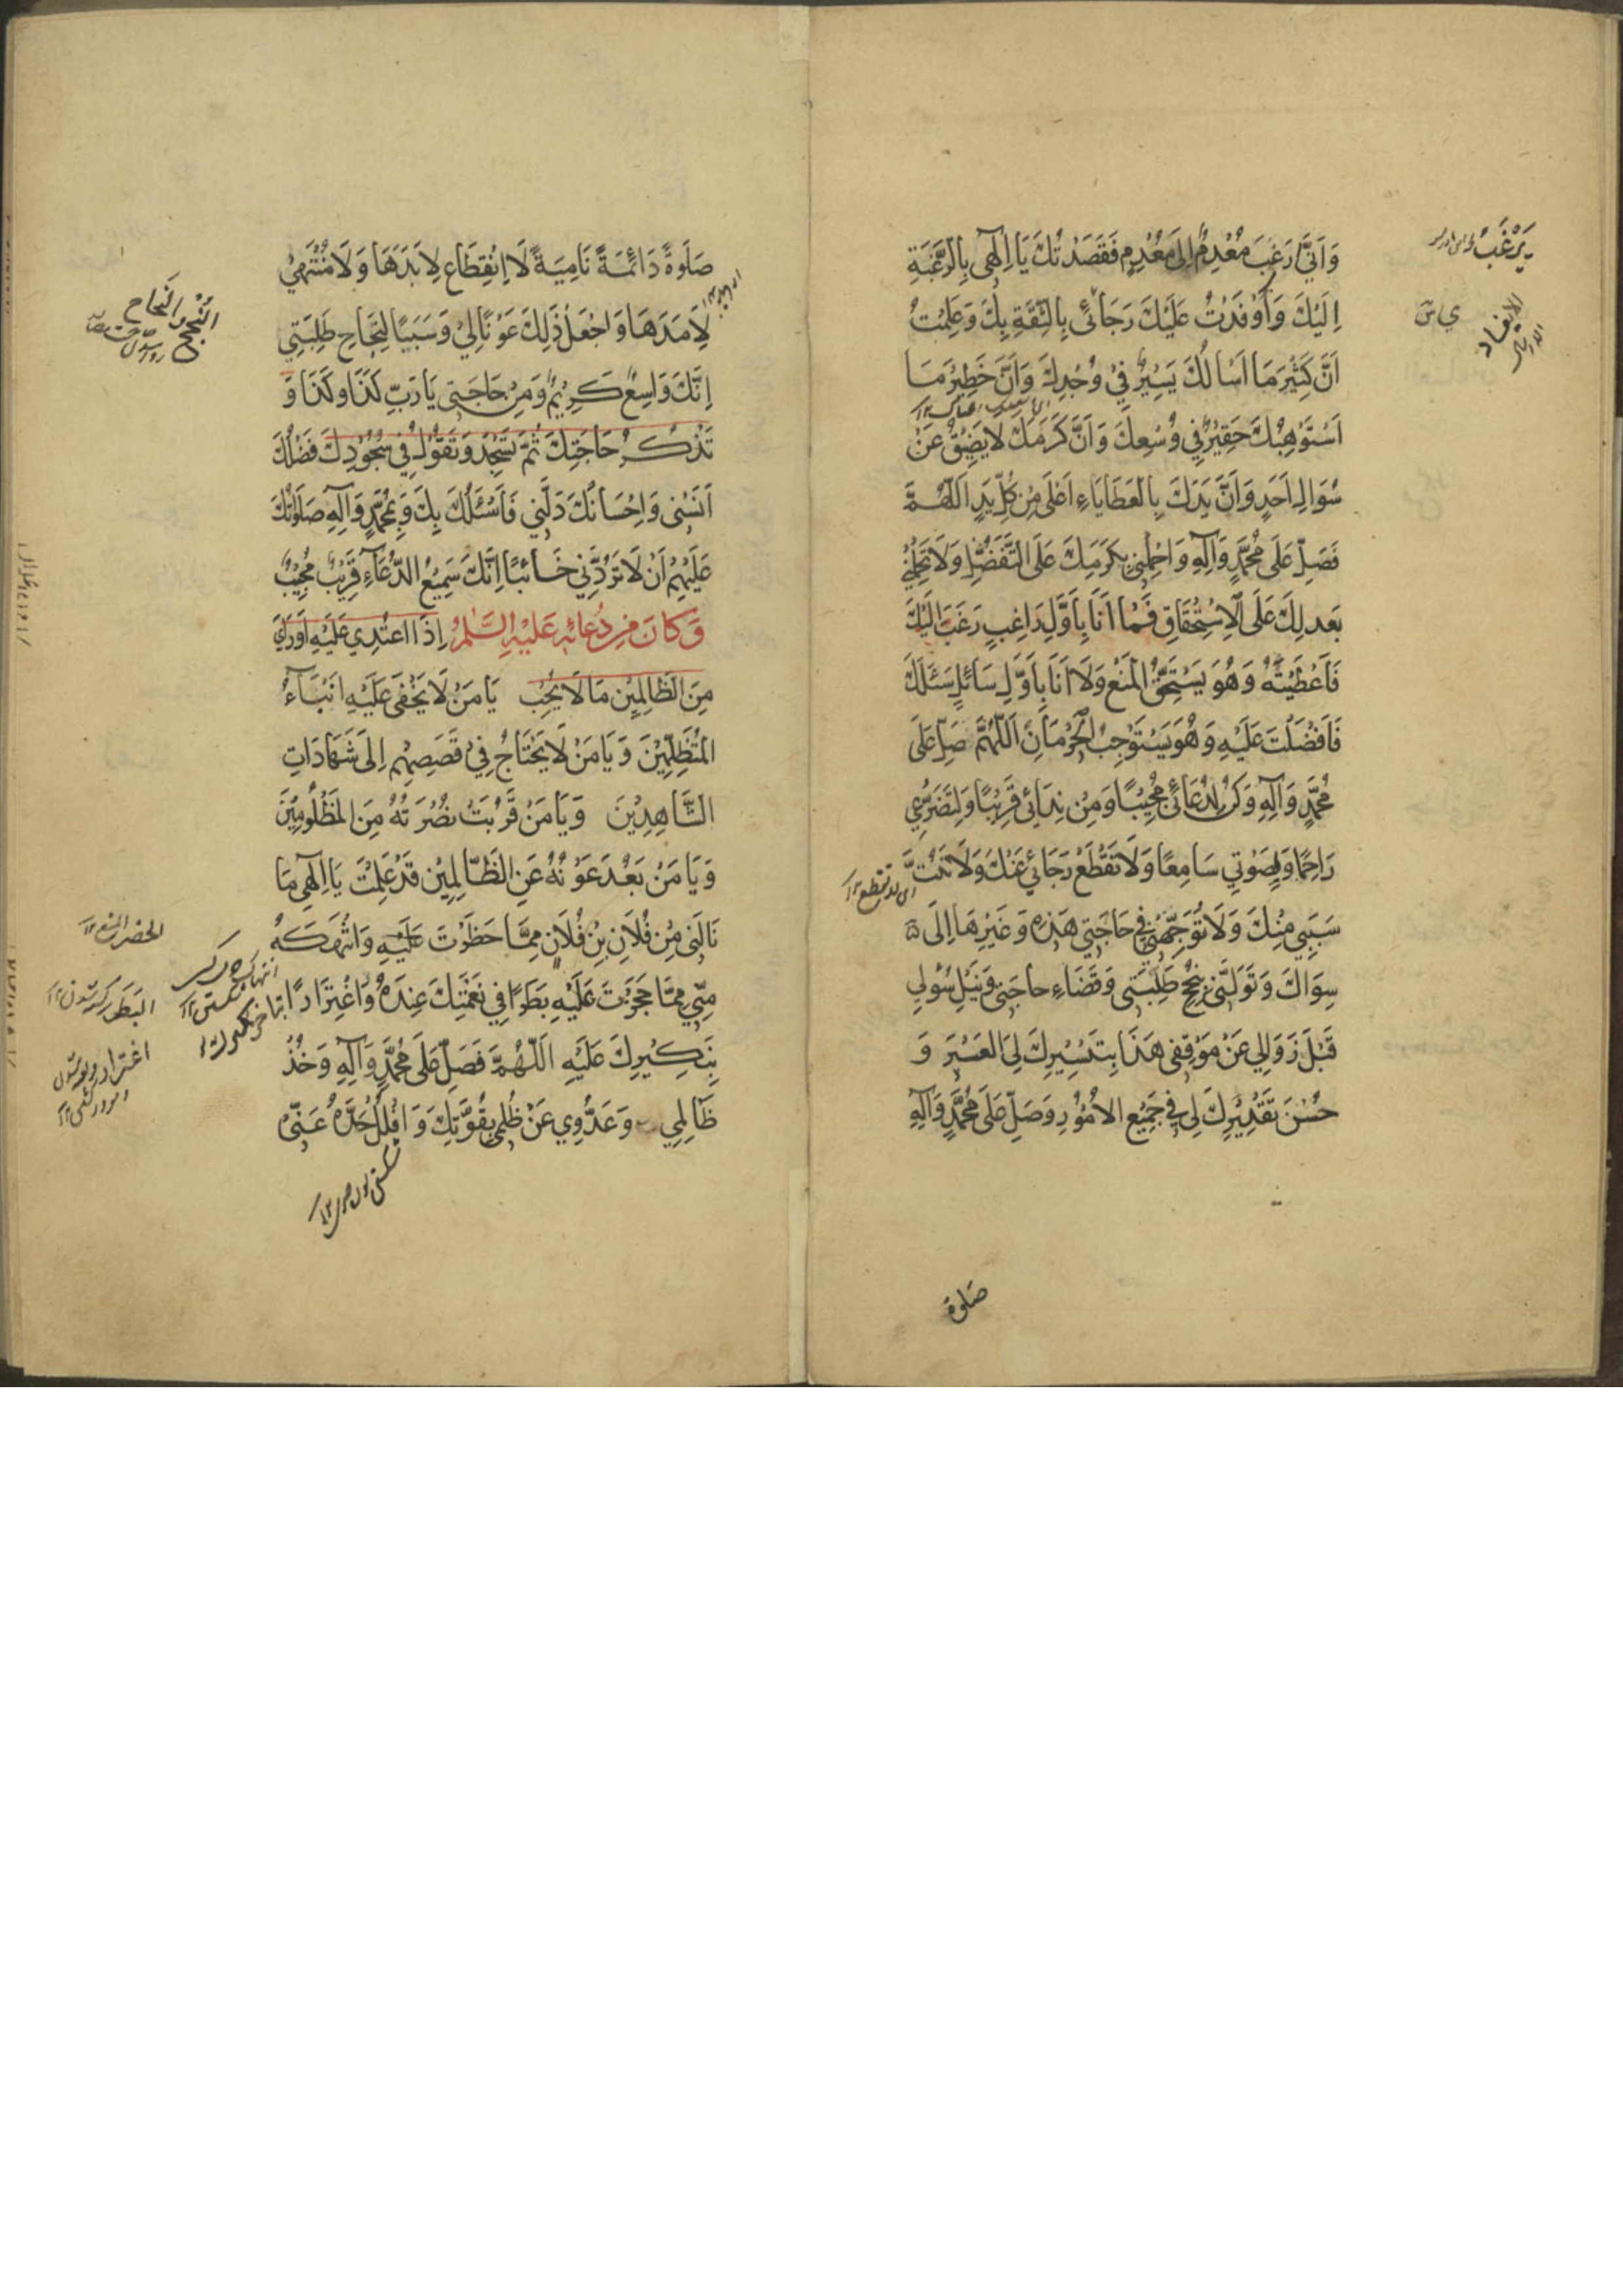 وَاَنّٰى رَغِبَ مُعْدِمٌ اِلَى مُعْدِمٍ فَقَصَدْتُكَ يَا اِلٰهِى بِالرَّغْبَةِ
اِلَيْكَ وَاَوْفَدْتُ عَلَيْكَ رَجَائِى بِالثِّقَةِ بِكَ وَعَلِمْتُ
اَنَّ كَثِيْرَ مَا اَسْاَلُكَ يَسِيْرٌ فِيْ وُجْدِكَ وَاَنَّ خَطِيْرَ مَا
اَسْتَوْهِبُكَ حَقِيْرٌ فِي وُسْعِكَ وَاَنَّ كَرَمَكَ لَا يَضِيْقُ عَنْ
سُوَالِ اَحَدٍ وَاَنَّ يَدَكَ بِالْعَطَايَاءِ اَعْلَى مِنْ كُلِّ يَدٍ اَللّٰهُمَّ
فَصَلِّ عَلَى مُحَمَّدٍ وَآلِهِ وَاحْمِلْنِى بِكَرَمِكَ عَلَى التَّفَضُّلِ وَلَا تَحْمِلْنِى
بِعَدلِكَ عَلَى الْاِسْتِحْقَاقِ فَمَا اَنَا بِاَوَّلِ رَاغِبٍ رَغِبَ اِلَيْكَ
فَاَعْطَيْتَهُ وَهُوَ يَسْتَحِقُّ الْمَنْعَ وَلَا اَنَا بِاَوَّلِ سَائِلٍ سَئَلَكَ
فَاَفْضَلْتَ عَلَيْهِ وَهُوَ يَسْتَوْجِبُ الْحِرْمَانَ اَللّٰهُمَّ صَلِّ عَلَى
مُحَمَّدٍ وَآلِهِ وَكُنْ لِدُعَائِى مُجِيْبًا وَمِنْ نِدَائِى قَرِيْبًا وَلِتَضَرُّعِي
رَاحِمًا وَلِصَوْتِي سَامِعًا وَلَا تَقْطَعْ رَجَائِي عَنْكَ وَلَا تَبُتَّ
سَبَبِي مِنْكَ وَلَا تُوَجِّهْنِى فِي حَاجَتِي هَذِهِ وَغَيْرِهَا اِلَى
سِوَاكَ وَتَوَلَّنِى بِنُجْحِ طَلِبَتِى وَقَضَاءِ حَاجَتِى وَنَيْلِ سُؤْلِي
قَبْلَ زَوَالِي عَنْ مَوْقِفِى هَذَا بِتَيْسِيْرِكَ لِيَ الْعَسِيْرَ وَ
حُسْنِ تَقْدِيْرِكَ لِى فِي جَمِيْعِ الْاُمُوْرِ وَصَلِّ عَلَى مُحَمَّدٍ وَآلِهِ
صلوة
يَرْغَبُ
الايفاد
صَلٰوةً دَائِمَةً نَامِيَةً لَا اِنْقِطَاعَ لِاَبَدِهَا وَلَا مُنْتَهٰى
لِاَمَدِهَا وَاجْعَلْ ذَلِكَ عَوْنًا لِيْ وَسَبَبًا لِنَجَاحِ طَلِبَتِي
اِنَّكَ وَاسِعٌ كَرِيْمٌ وَمِنْ حَاجَتِى يَا رَبِّ كَذَا وَكَذَا وَ
تَذْكُرُ حَاجَتَكَ ثُمَّ تَسْجُدُ وَتَقُوْلُ فِي سُجُوْدِكَ فَضْلُكَ
اٰنَسَنِى وَاِحْسَانُكَ دَلَّنِي فَاَسْئَلُكَ بِكَ وَبِمُحَمَّدٍ وَآلِهِ صَلَوَاتُكَ
عَلَيْهِمْ اَنْ لَا تَرُدَّنِي خَائِبًا اِنَّكَ سَمِيْعُ الدُّعَآءِ قَرِيْبٌ مُجِيْبٌ
وَكَانَ مِنْ دُعَائِهِ عَلَيْهِ السَّلٰمُ اِذَا اعْتُدِي عَلَيْهِ اَوْ رَاى
مِنَ الظَّالِمِيْنَ مَا لَا يُحِبُّ يَا مَنْ لَا يَخْفَى عَلَيْهِ اَنْبَآءُ
الْمُتَظَلِّمِيْنَ وَيَا مَنْ لَا يَحْتَاجُ فِيْ قَصَصِهِمْ اِلَى شَهَادَاتِ
الشَّاهِدِيْنَ وَيَا مَنْ قَرُبَتْ نُصْرَتُهُ مِنَ الْمَظْلُوْمِيْنَ
وَيَا مَنْ بَعُدَ عَوْنُهُ عَنِ الظَّالِمِيْنَ قَدْ عَلِمْتَ يَا اِلٰهِى مَا
نَالَنِى مِنْ فُلَانِ بْنِ فُلَانٍ مِمَّا حَظَرْتَ عَلَيْهِ وَانْتَهَكَهُ
مِنِّي مِمَّا حَجَزْتَ عَلَيْهِ بَطَرًا فِي نِعْمَتِكَ عِنْدَهُ وَاغْتِرَارًا
بِنَكِيْرِكَ عَلَيْهِ اَللّٰهُمَّ فَصَلِّ عَلَى مُحَمَّدٍ وَآلِهِ وَخُذْ
ظَالِمِي وَعَدُوِّي عَنْ ظُلْمِى بِقُوَّتِكَ وَافْلُلْ حَدَّهُ عَنِّى
النجح والنجاح
الحضر المنع
البَطَر
اغترار